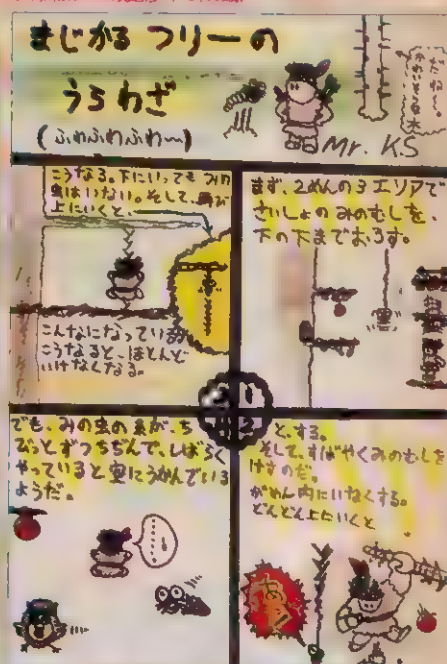 まじかるつリーの
うらわざ
(ふわふわふわ〜)
Mr. K.S
まず、2めんの3エリアで
さいしょのみのむしを、
下の下までおろす。
1
2
と、する。
そして、すばやくみのむしを
けすのだ。
がめん内にいなくする。
どんどん上にいくと
こうなる。下にいってもみの
虫はいない。そして、再び
上にいくと、
こんなになっている
こうなると、ほとんど
いけなくなる。
でも、みの虫の糸が、ち
びっとずつちぢんで、しばらく
やっていると空にうかんでいる
ようだ。